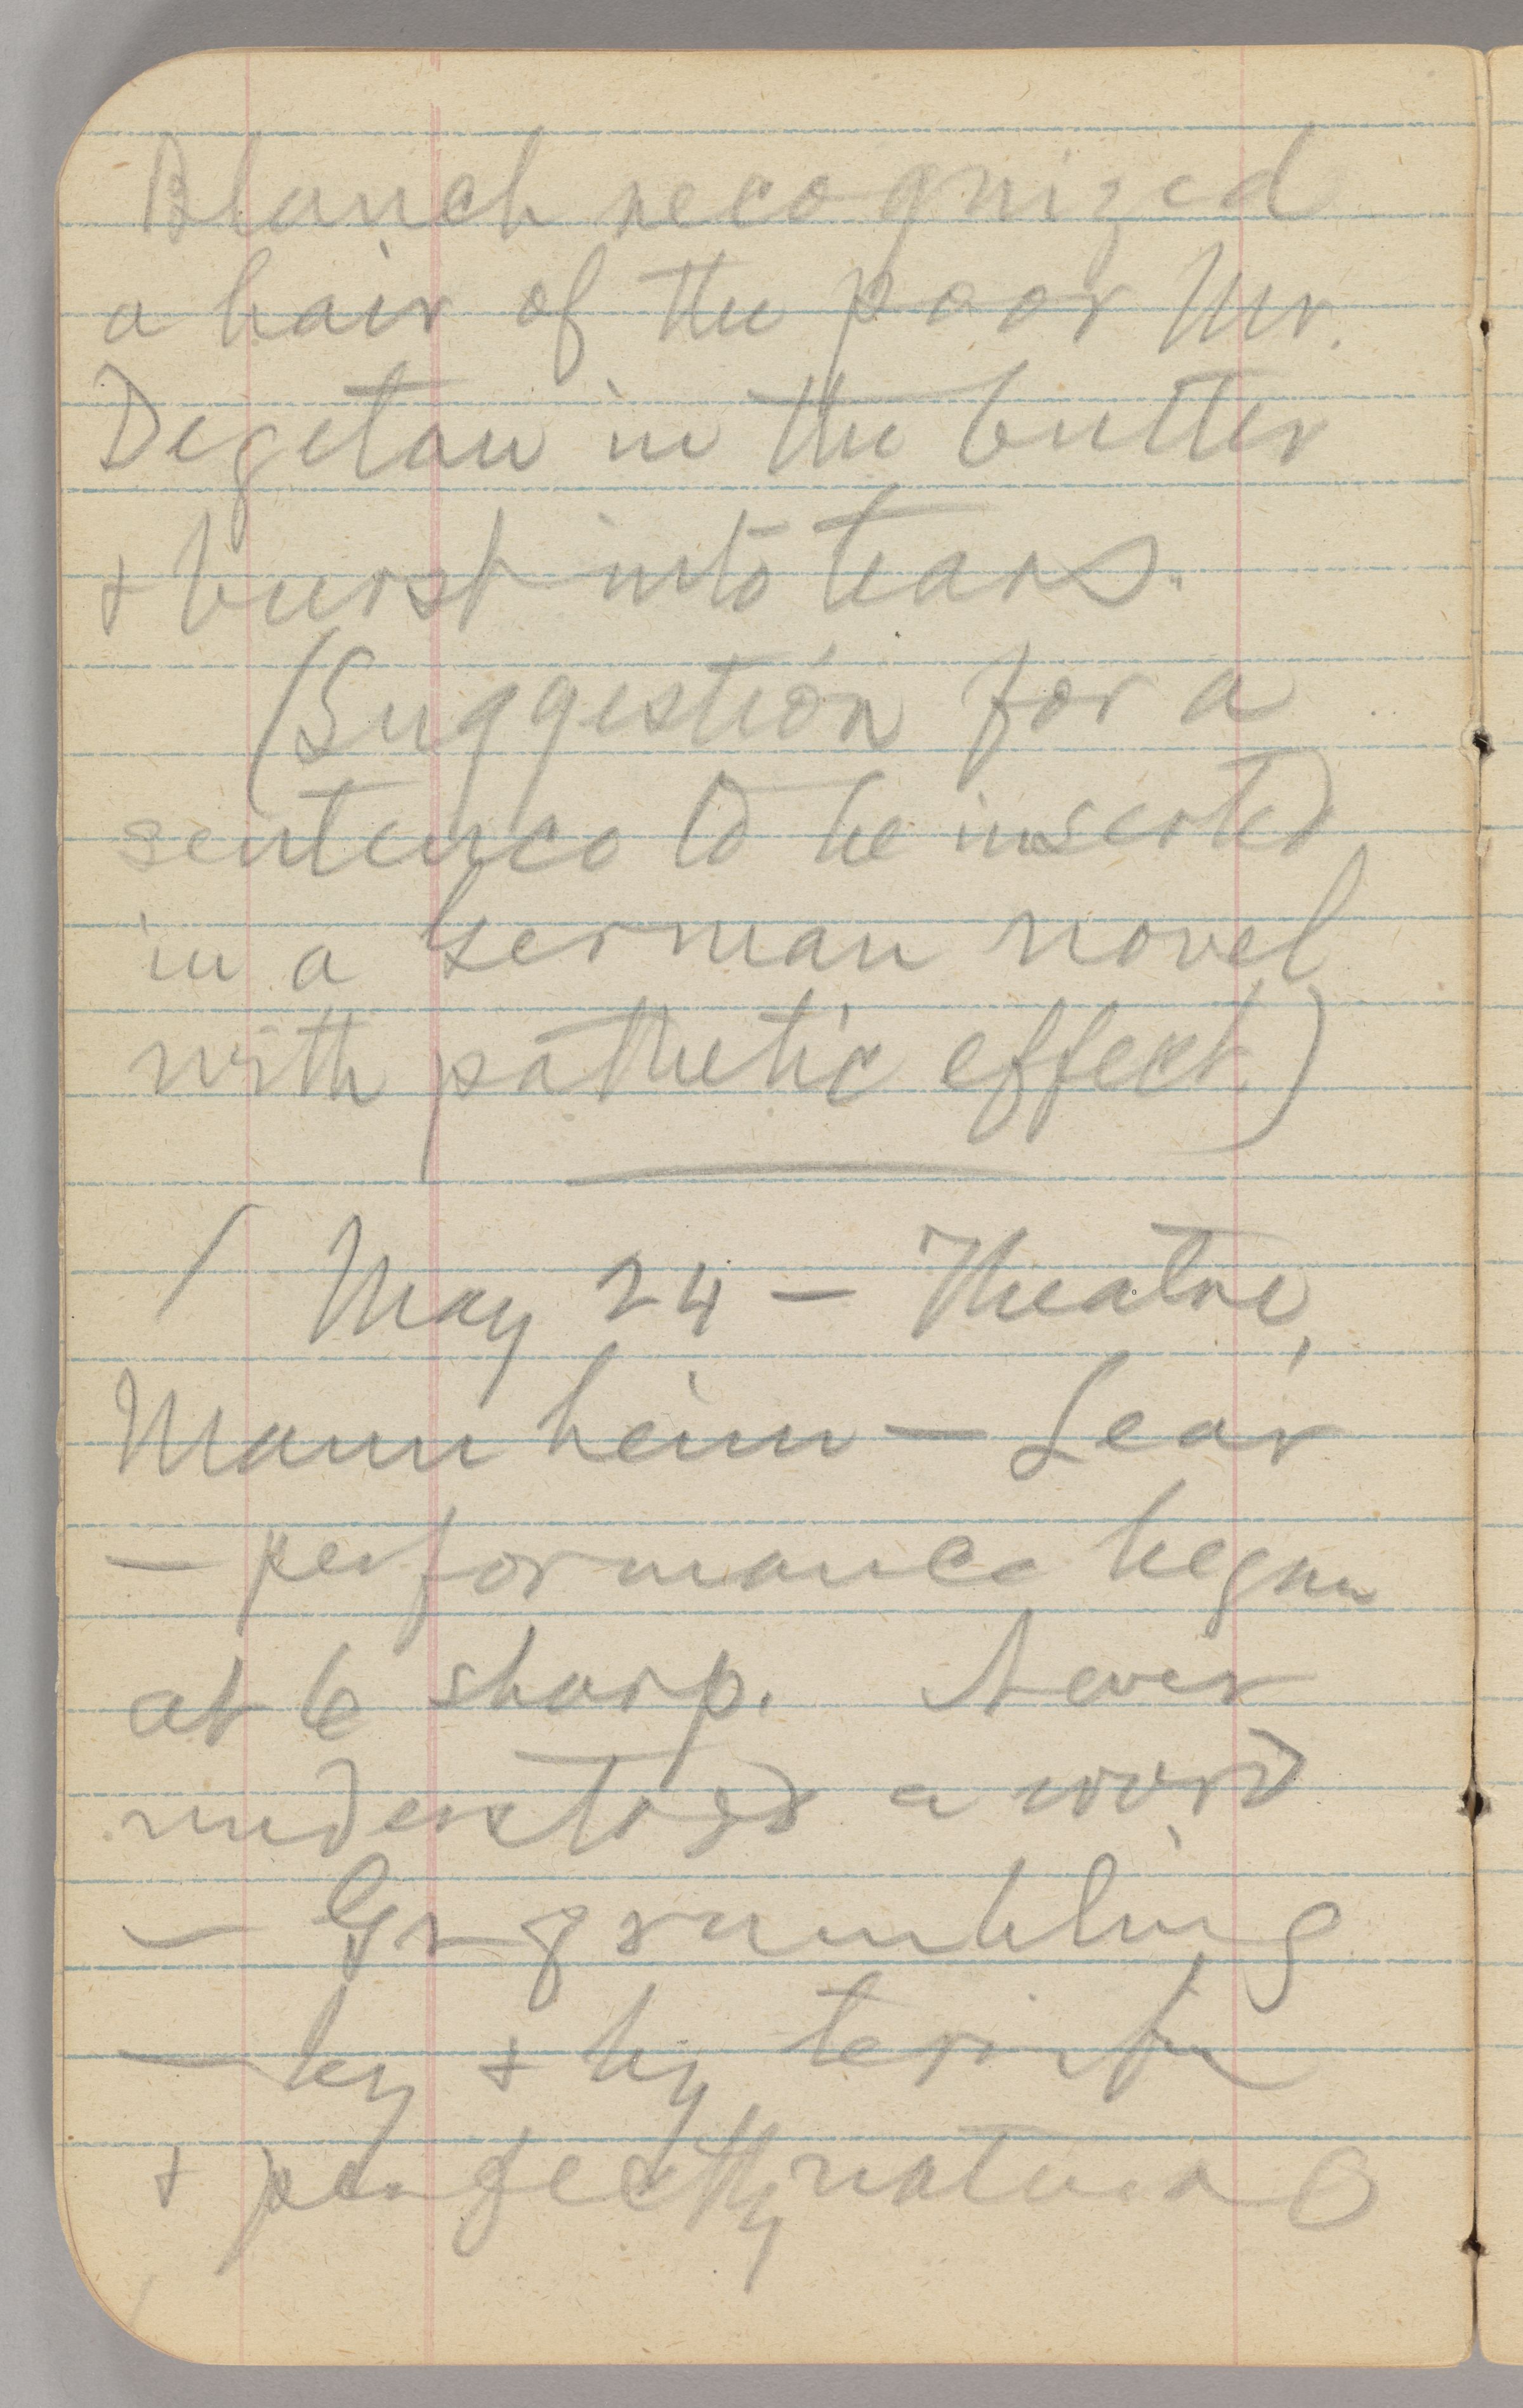 Blanch recognized
a hair of the poor Mr.
Degetau in the butter
& burst into tears.
(Suggestion for a
sentence to be inserted
in a German novel
with pathetic effect.)
/ May 24 — Theatre,
Mannheim — Lear
— performance began
at 6 sharp. Never
understood a word
— Gr grumbling
— by & by
& perfectly natural